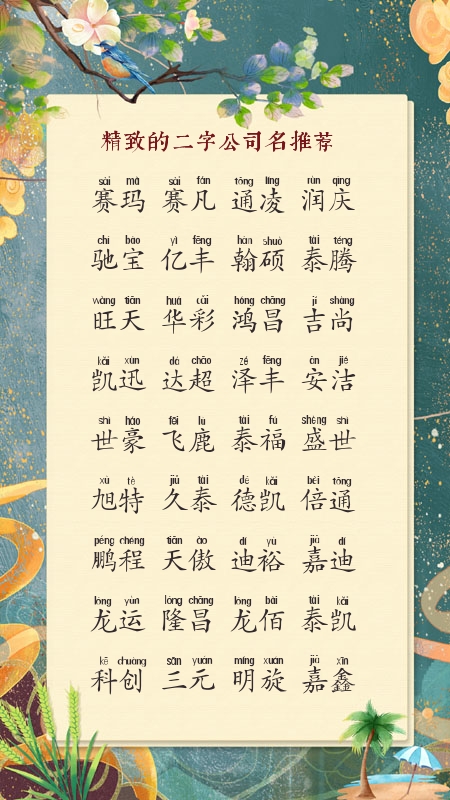 精致的二字公司名推荐
sài mǎ sài fán tōng líng rùn qìng
赛玛 赛凡 通凌 润庆
chí bǎo yì fēng hàn shuò tài téng
驰宝 亿丰 翰硕 泰腾
wàng tiān huá cǎi hóng chāng jí shàng
旺天 华彩 鸿昌 吉尚
kǎi xùn dá chāo zé fēng ān jié
凯迅 达超 泽丰 安洁
shì háo fēi lù tài fú shèng shì
世豪 飞鹿 泰福 盛世
xù tè jiǔ tài dé kǎi bèi tōng
旭特 久泰 德凯 倍通
péng chéng tiān ào dí yù jiā dí
鹏程 天傲 迪裕 嘉迪
lóng yùn lóng chāng lóng bǎi tài kǎi
龙运 隆昌 龙佰 泰凯
kē chuàng sān yuán míng xuán jiā xīn
科创 三元 明旋 嘉鑫